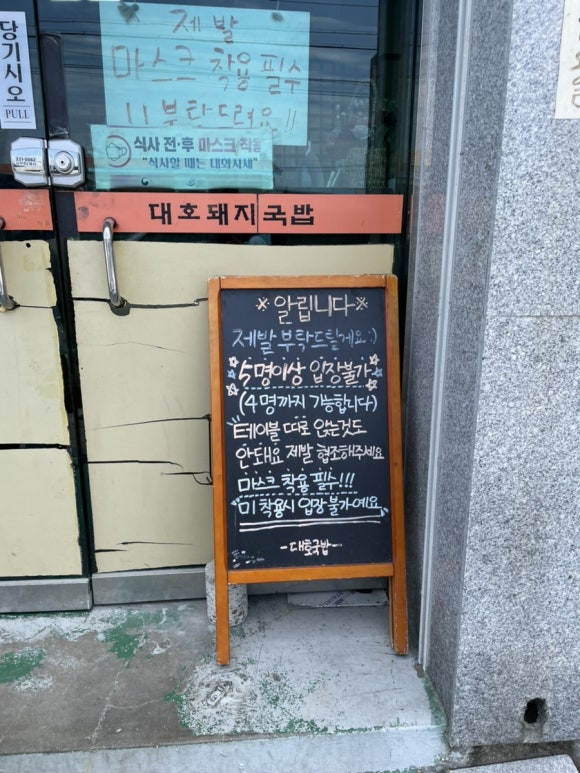 당기시오
PULL
제발
마스크 착용 필수
!! 부탁드려요!!
식사 전·후 마스크 착용
"식사할 때는 대화자제"
대호돼지국밥
※알립니다※
제발 부탁드릴게요 :)
5명이상 입장불가
(4명까지 가능합니다)
테이블 따로 앉는것도
안돼요 제발 협조해주세요
마스크 착용 필수!!!
미 착용시 입장 불가예요
-대호국밥-